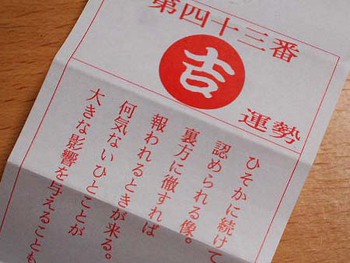 第四十三番
吉
運勢
ひそかに続けて
認められる像。
裏方に徹すれば
報われるときが来る。
何気ないひとことが
大きな影響を与えることも